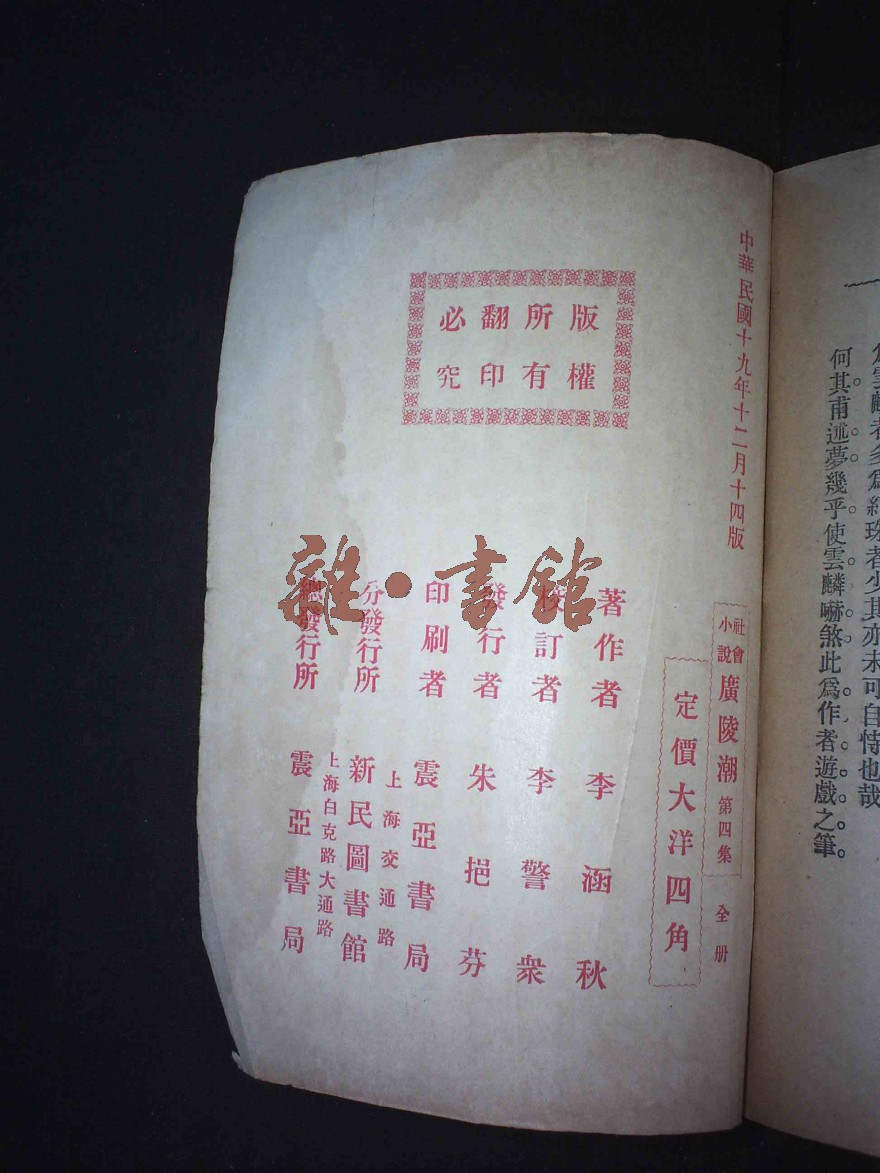 為雲麟者多為紅珠者少其亦未可自恃也哉
何其甫述夢幾乎使雲麟嚇煞此為作者遊戲之筆。
中華民國十九年十二月十四版
社會小說 廣陵潮 第四集 全册
定價大洋四角
版權
所有
翻印
必究
著作者 李涵秋
校訂者 李警衆
發行者 朱挹芬
印刷者 震亞書局
上海交通路
分發行所 新民圖書館
上海白克路大通路
總發行所 震亞書局
雜·書館